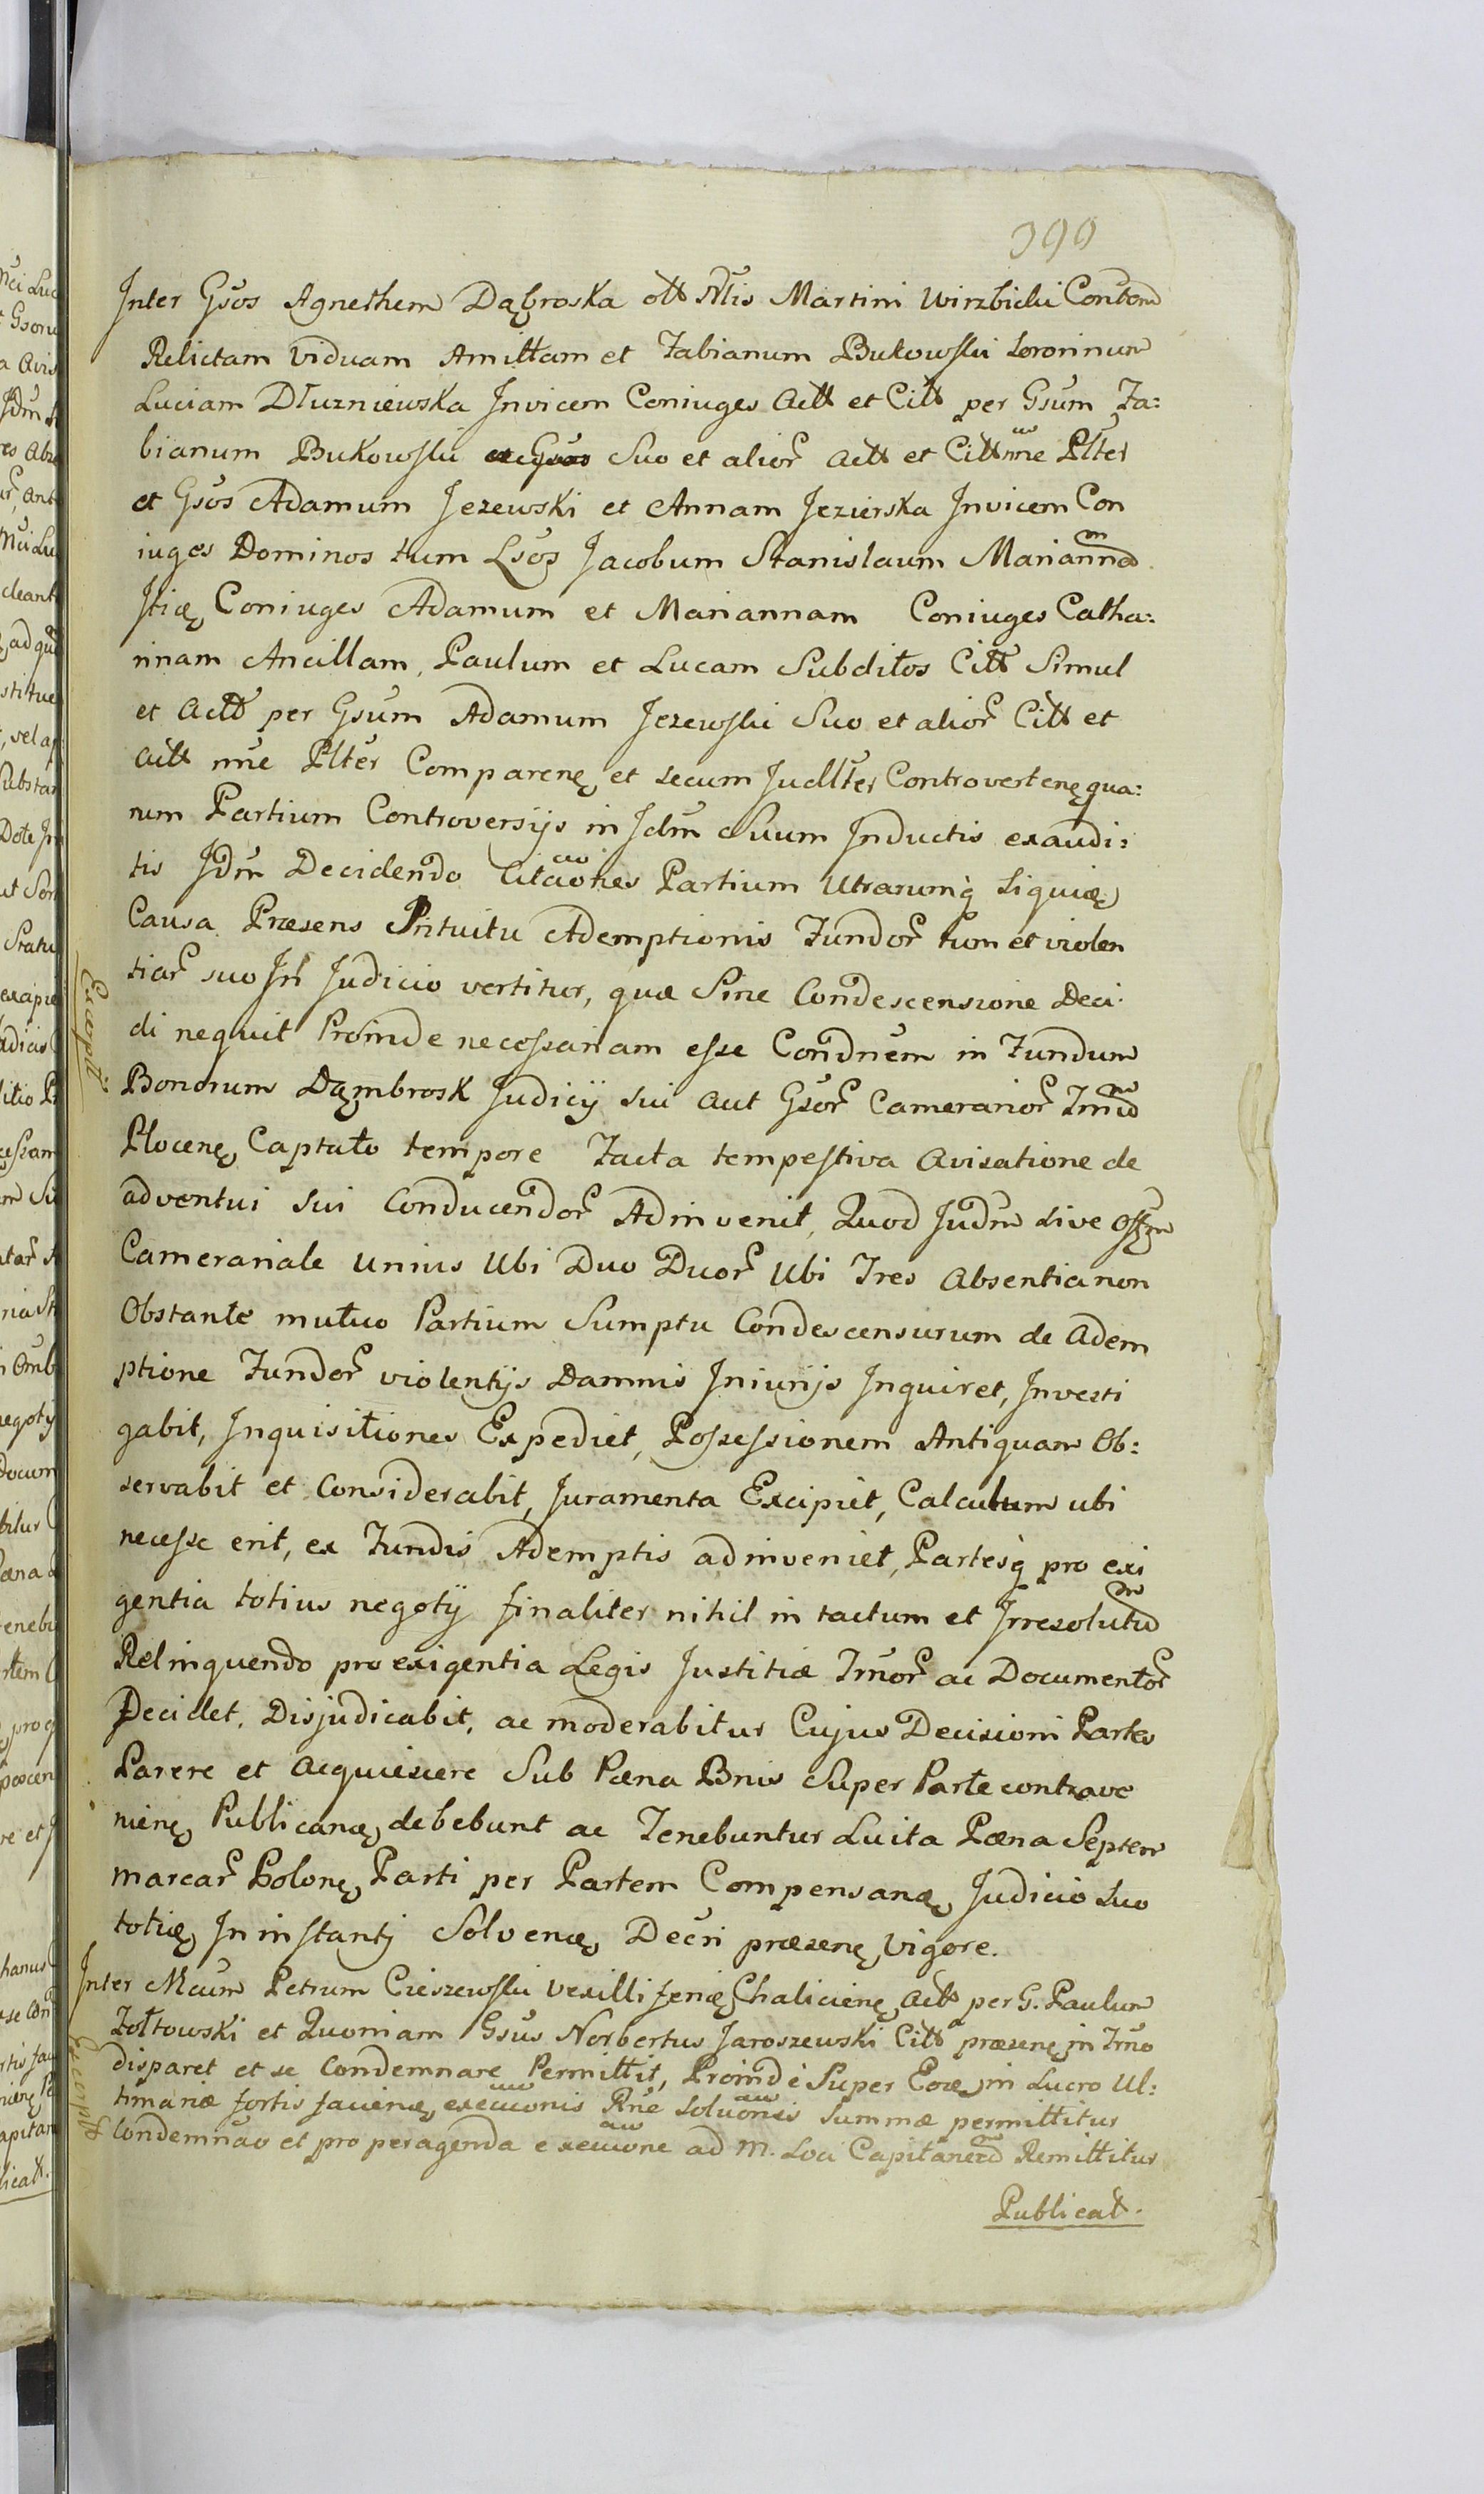 399
Inter Gsos Agnethem Dąbroska olt Ntis Martini Wirzbicki Contom
Relictam Viduam Amittam et Fabianum Bukowski Sororinum
Luciam Dłuzniewska Invicem Coniuges Actt et Citt per Gsum Fa:
bianum Bukowski Suo et alior Actt et Citt nne Plter
et Gsos Adamum Jezewski et Annam Jezierska Invicem Con
iuges Dominos tum Lsos Jacobum Stanislaum Mariannam
Itię Coniuges Adamum et Mariannam Coniuges Catha:
rinam Ancillam, Paulum et Lucam Subditos Citt Simul
et Actt per Gsum Adamum Jezewski Suo et alior Citt et
Actt nne Plter Comparenę et secum Judlter Controvertenę qua:
rum Partium Controversijs in Jdm Suum Inductis exaudi:
tis Jdm Decidendo Citaones Partium Utrarumq Siquię
Causa Præsens Intuitu Ademptionis Fundor tum et violen
tiar suo In Judicio vertitur, quæ Sine Condescensione Deci
di nequit Proinde necessariam esse Condnem in Fundum
Bonorum Dąmbrosk Judicij sui aut Gsor Camerarior Trnm
Plocenę Captato tempore Facta tempestiva Avisatione de
adventui sui Conducendor Adinvenit, Quod Judm sive Offm
Camerariale Unius Ubi Duo Duor Ubi Tres Absentia non
Obstante mutuo Partium Sumptu Condescensurum de Adem
ptione Fundor violentijs Damnis Iniurijs Inquiret, Investi
gabit, Inquisitiones Expediet, Possessionem Antiquam Ob:
servabit et Considerabit, Juramenta Excipiet, Calculum ubi
necesse erit, ex Fundis Ademptis adinveniet, Partesq pro exi
gentia totius negotij finaliter nihil in tactum et Irresolutum
Relinquendo pro exigentia Legis Justitiæ Trnor ac Documentor
Decidet, Disjudicabit, ac moderabitur Cujus Decisioni Partes
Parere et Acquiescere Sub Pæna Bnis Super Parte contrave
nienę Publicanę debebunt ac Tenebuntur Luita Pæna Septem
marcar Polonę Parti per Partem Compensanę Judicio Suo
totię In instanti Solvenę Decri præsenę Vigore.
Except
Inter Mcum Petrum Cieszewski Vexilliferię Chalicienę Actt per G. Paulum
Zołtowski et Quoniam Gsus Norbertus Jaroszewski Citt præsenę in Trno
disparet et se Condemnare Permittit, Proinde Super Eoæ in Lucro Ul:
timariæ fortis faciendę execuonis Rne Soluonis Summæ permittitur
Condemnao et pro peragenda execuone ad M. Loci Capitanem Remittitur
Except
Publicat.